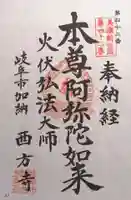 奉納経
本尊阿弥陀如来
火伏弘法大師
岐阜市加納
西方寺